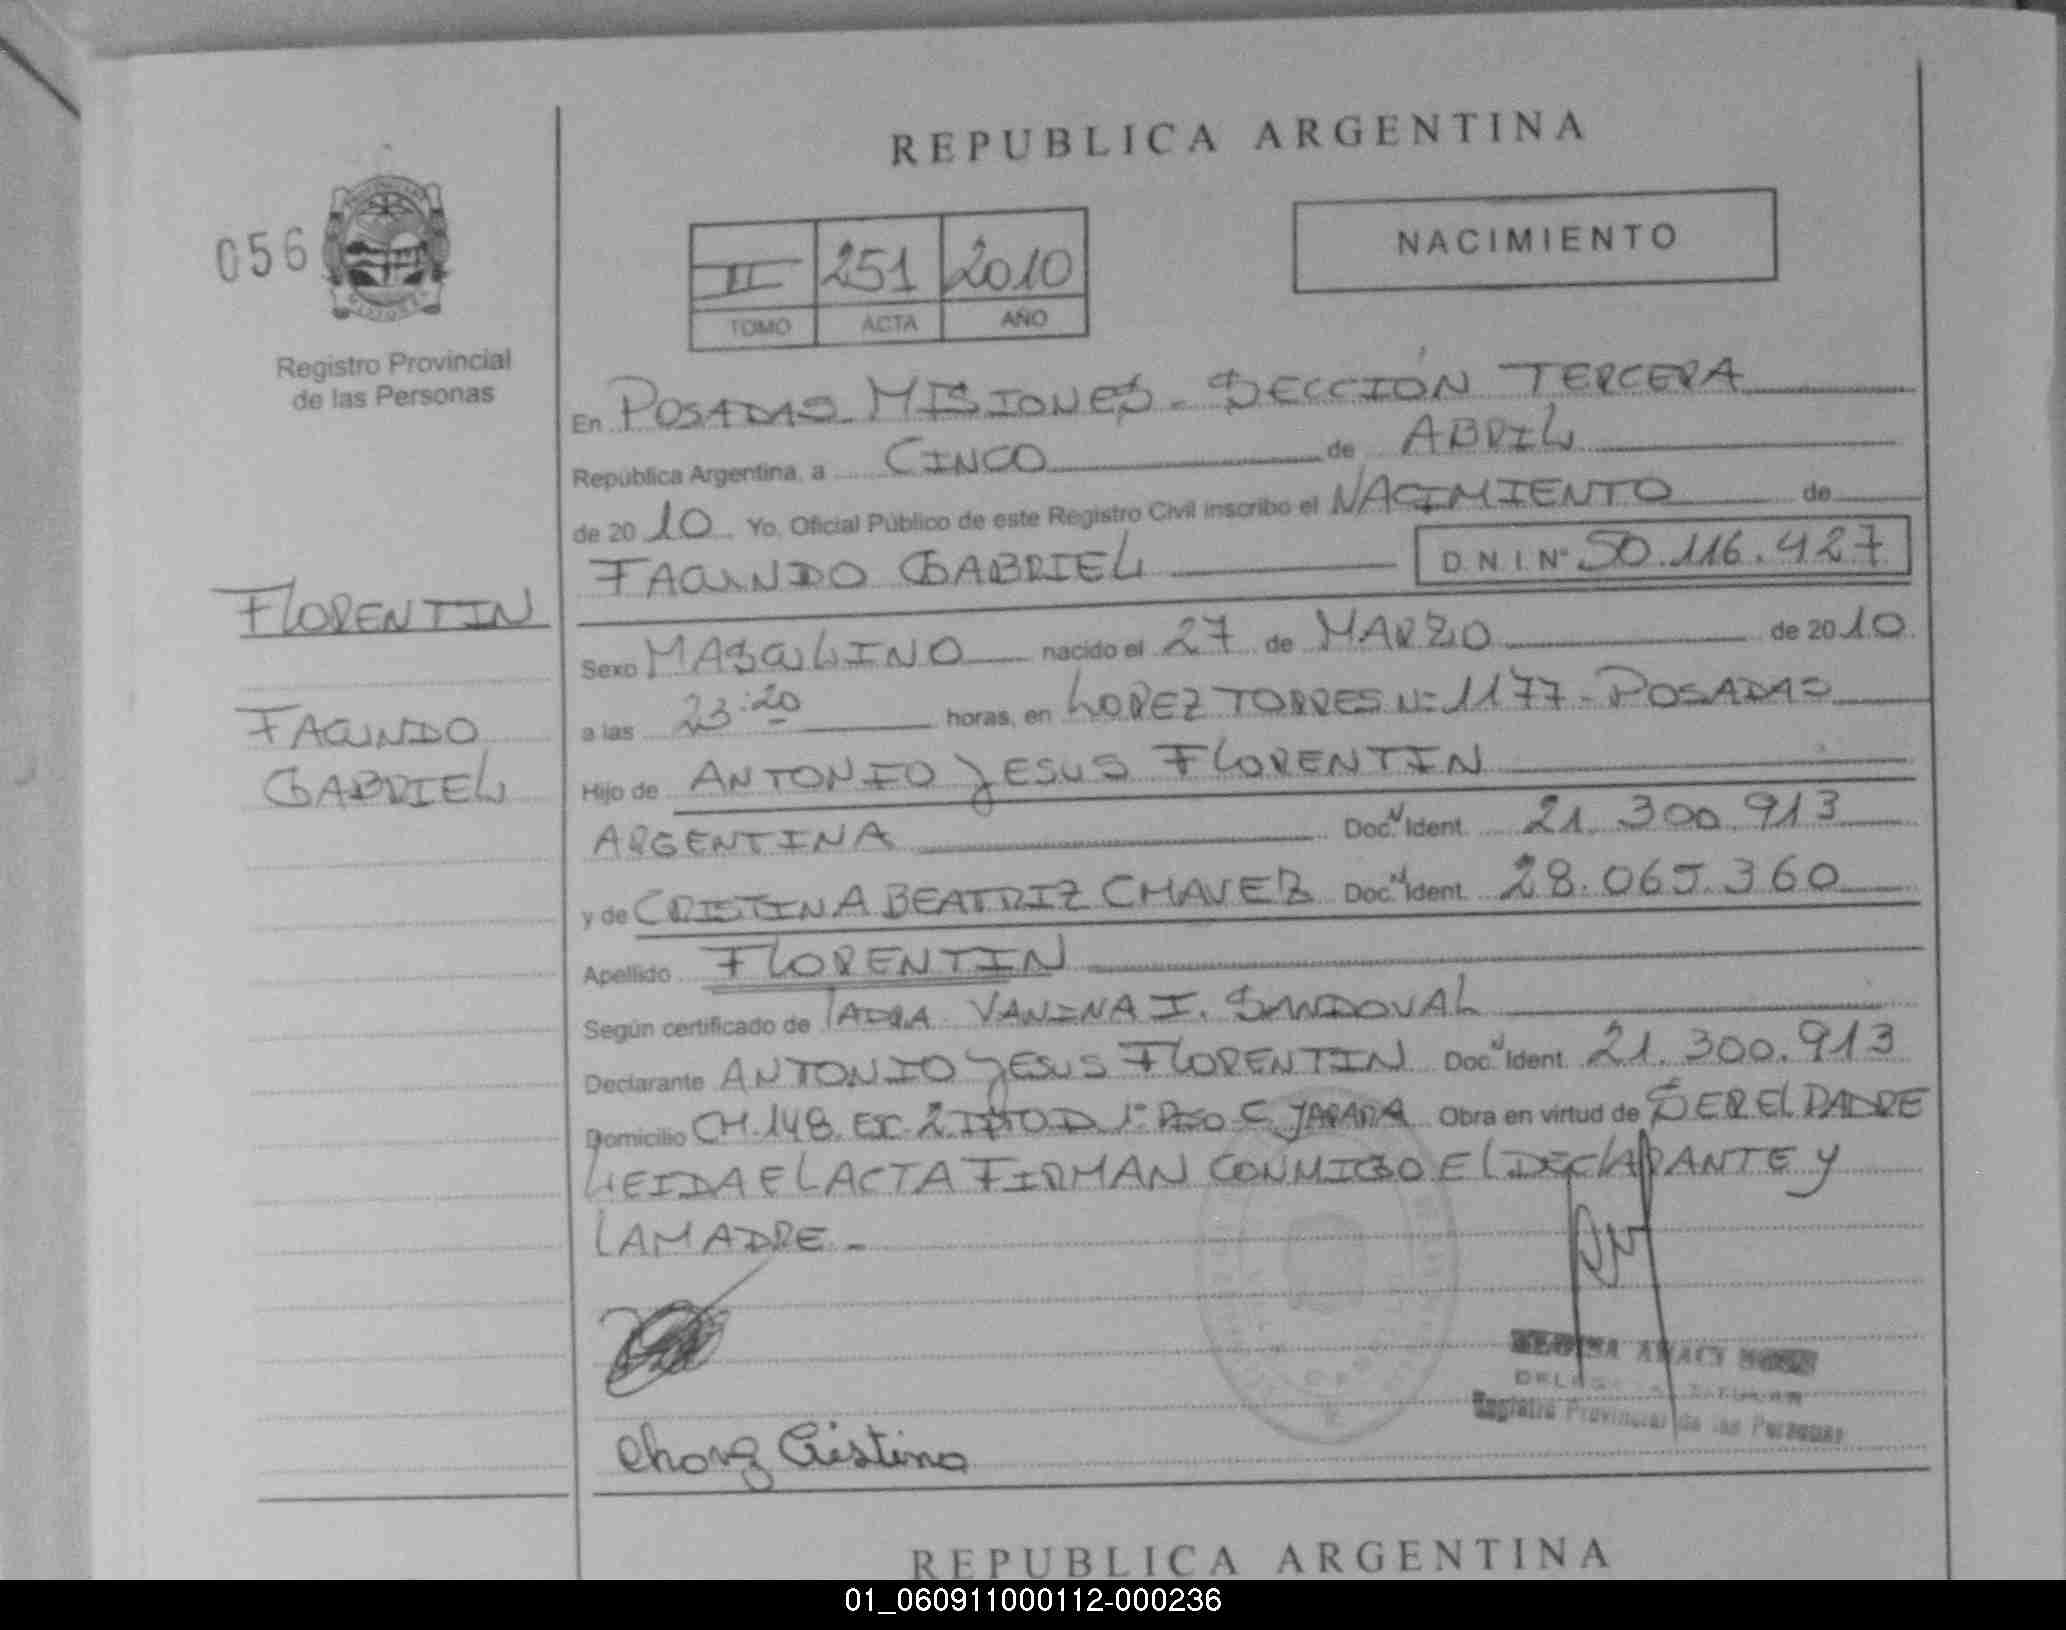 REPUBLICA ARGENTINA
056
II 251 2010
TOMO ACTA AÑO
NACIMIENTO
Registro Provincial
de las Personas
En POSADAS MISIONES - SECCIÓN TERCERA
República Argentina, a CINCO de ABRIL
de 20 10 Yo, Oficial Público de este Registro Civil inscribo el NACIMIENTO de
FACUNDO GABRIEL D.N.I. Nº 50.116.427
FLORENTIN
FACUNDO
GABRIEL
Sexo MASCULINO nacido el 27 de MARZO de 20 10
a las 23:20 horas, en LOPEZ TORRES Nº 1177 - POSADAS
Hijo de ANTONIO JESUS FLORENTIN
ARGENTINA Doc. N Ident. 21.300.913
y de CRISTINA BEATRIZ CHAVEZ Doc. N Ident. 28.065.360
Apellido FLORENTIN
Según certificado de VANINA I. SANDOVAL
Declarante ANTONIO JESUS FLORENTIN Doc. N Ident. 21.300.913
Domicilio CH. 148 ESC. 2 DPTO D 1º PISO Obra en virtud de SER EL PADRE
LEIDA EL ACTA FIRMAN CONMIGO EL DECLARANTE Y
LA MADRE -
Registro Provincial de las Personas
Cristina
REPUBLICA ARGENTINA
01_060911000112-000236